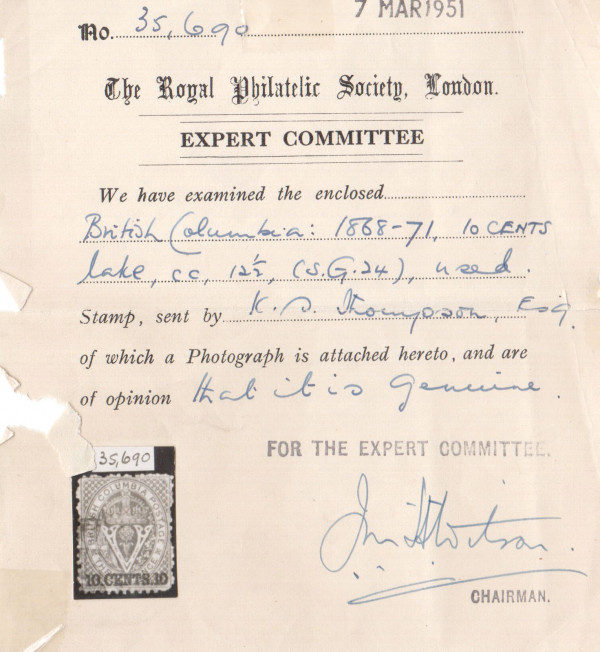 7 MAR 1951
No. 35,690
The Royal Philatelic Society, London.
EXPERT COMMITTEE
We have examined the enclosed
British Columbia: 1868-71, 10 CENTS
lake, cc, 12½, (S.G.24), used.
Stamp, sent by K. D. Thompson, Esq.
of which a Photograph is attached hereto, and are
of opinion that it is genuine.
35,690
FOR THE EXPERT COMMITTEE.
COLUMBIA POSTAGE
V
10.CENTS.10
CHAIRMAN.